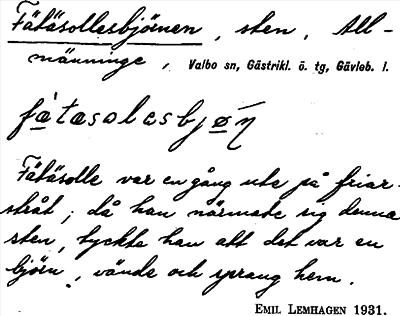 Fätäsollesbjörnen, sten, All-
männinge, Valbo sn, Gästrikl. ö. tg, Gävleb. l.
fàtasolesbjøn̄
Fätäsolle var en gång ute på friar-
stråt; då han närmade sig denna
sten, tyckte han att det var en
björn, vände och sprang hem.
EMIL LEMHAGEN 1931.